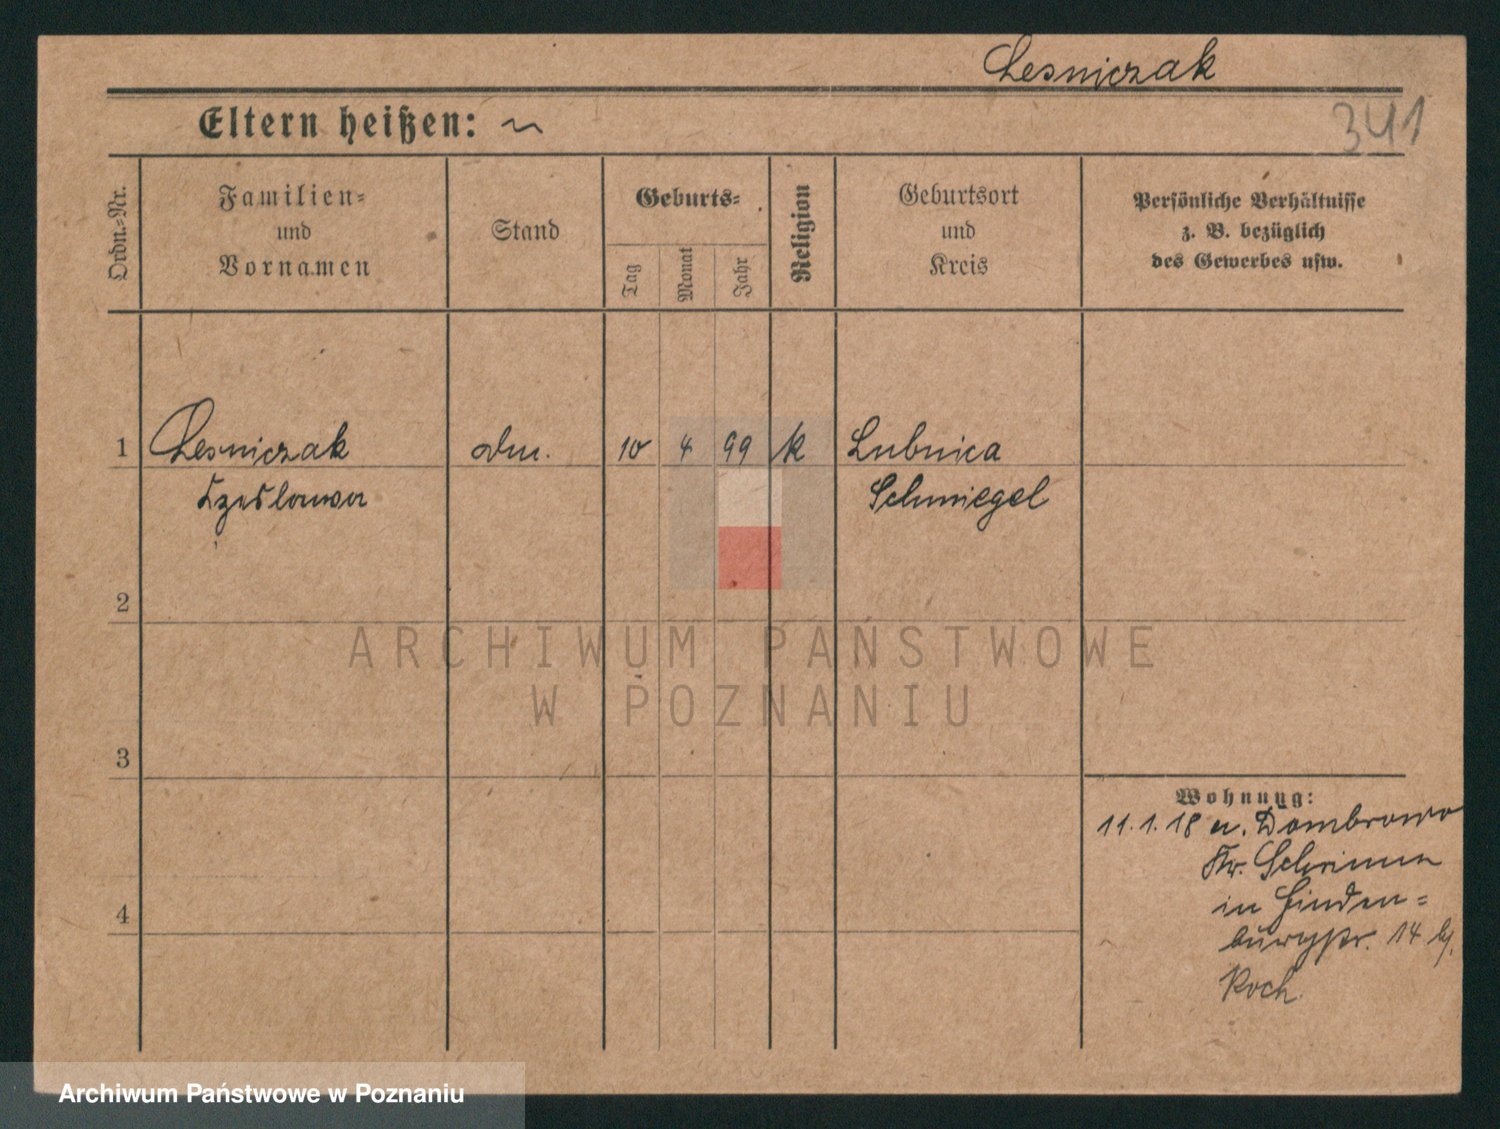 Lesniczak
341
Eltern heißen: ~
Ordn.-Nr.
Familien-
und
Vornamen
Stand
Geburts-
Tag
Monat
Jahr
Religion
Geburtsort
und
Kreis
Persönliche Verhältnisse
z. B. bezüglich
des Gewerbes usw.
1 Lesniczak 10 4 99 k Lubnica
Czeslawa Schmiegel
2
3
4
Wohnung:
11.1.18 a. Dombrowo
Kr. Schrimm
in Hinden-
burgstr. 14 b/.
Koch.
ARCHIWUM PAŃSTWOWE
W POZNANIU
Archiwum Państwowe w Poznaniu